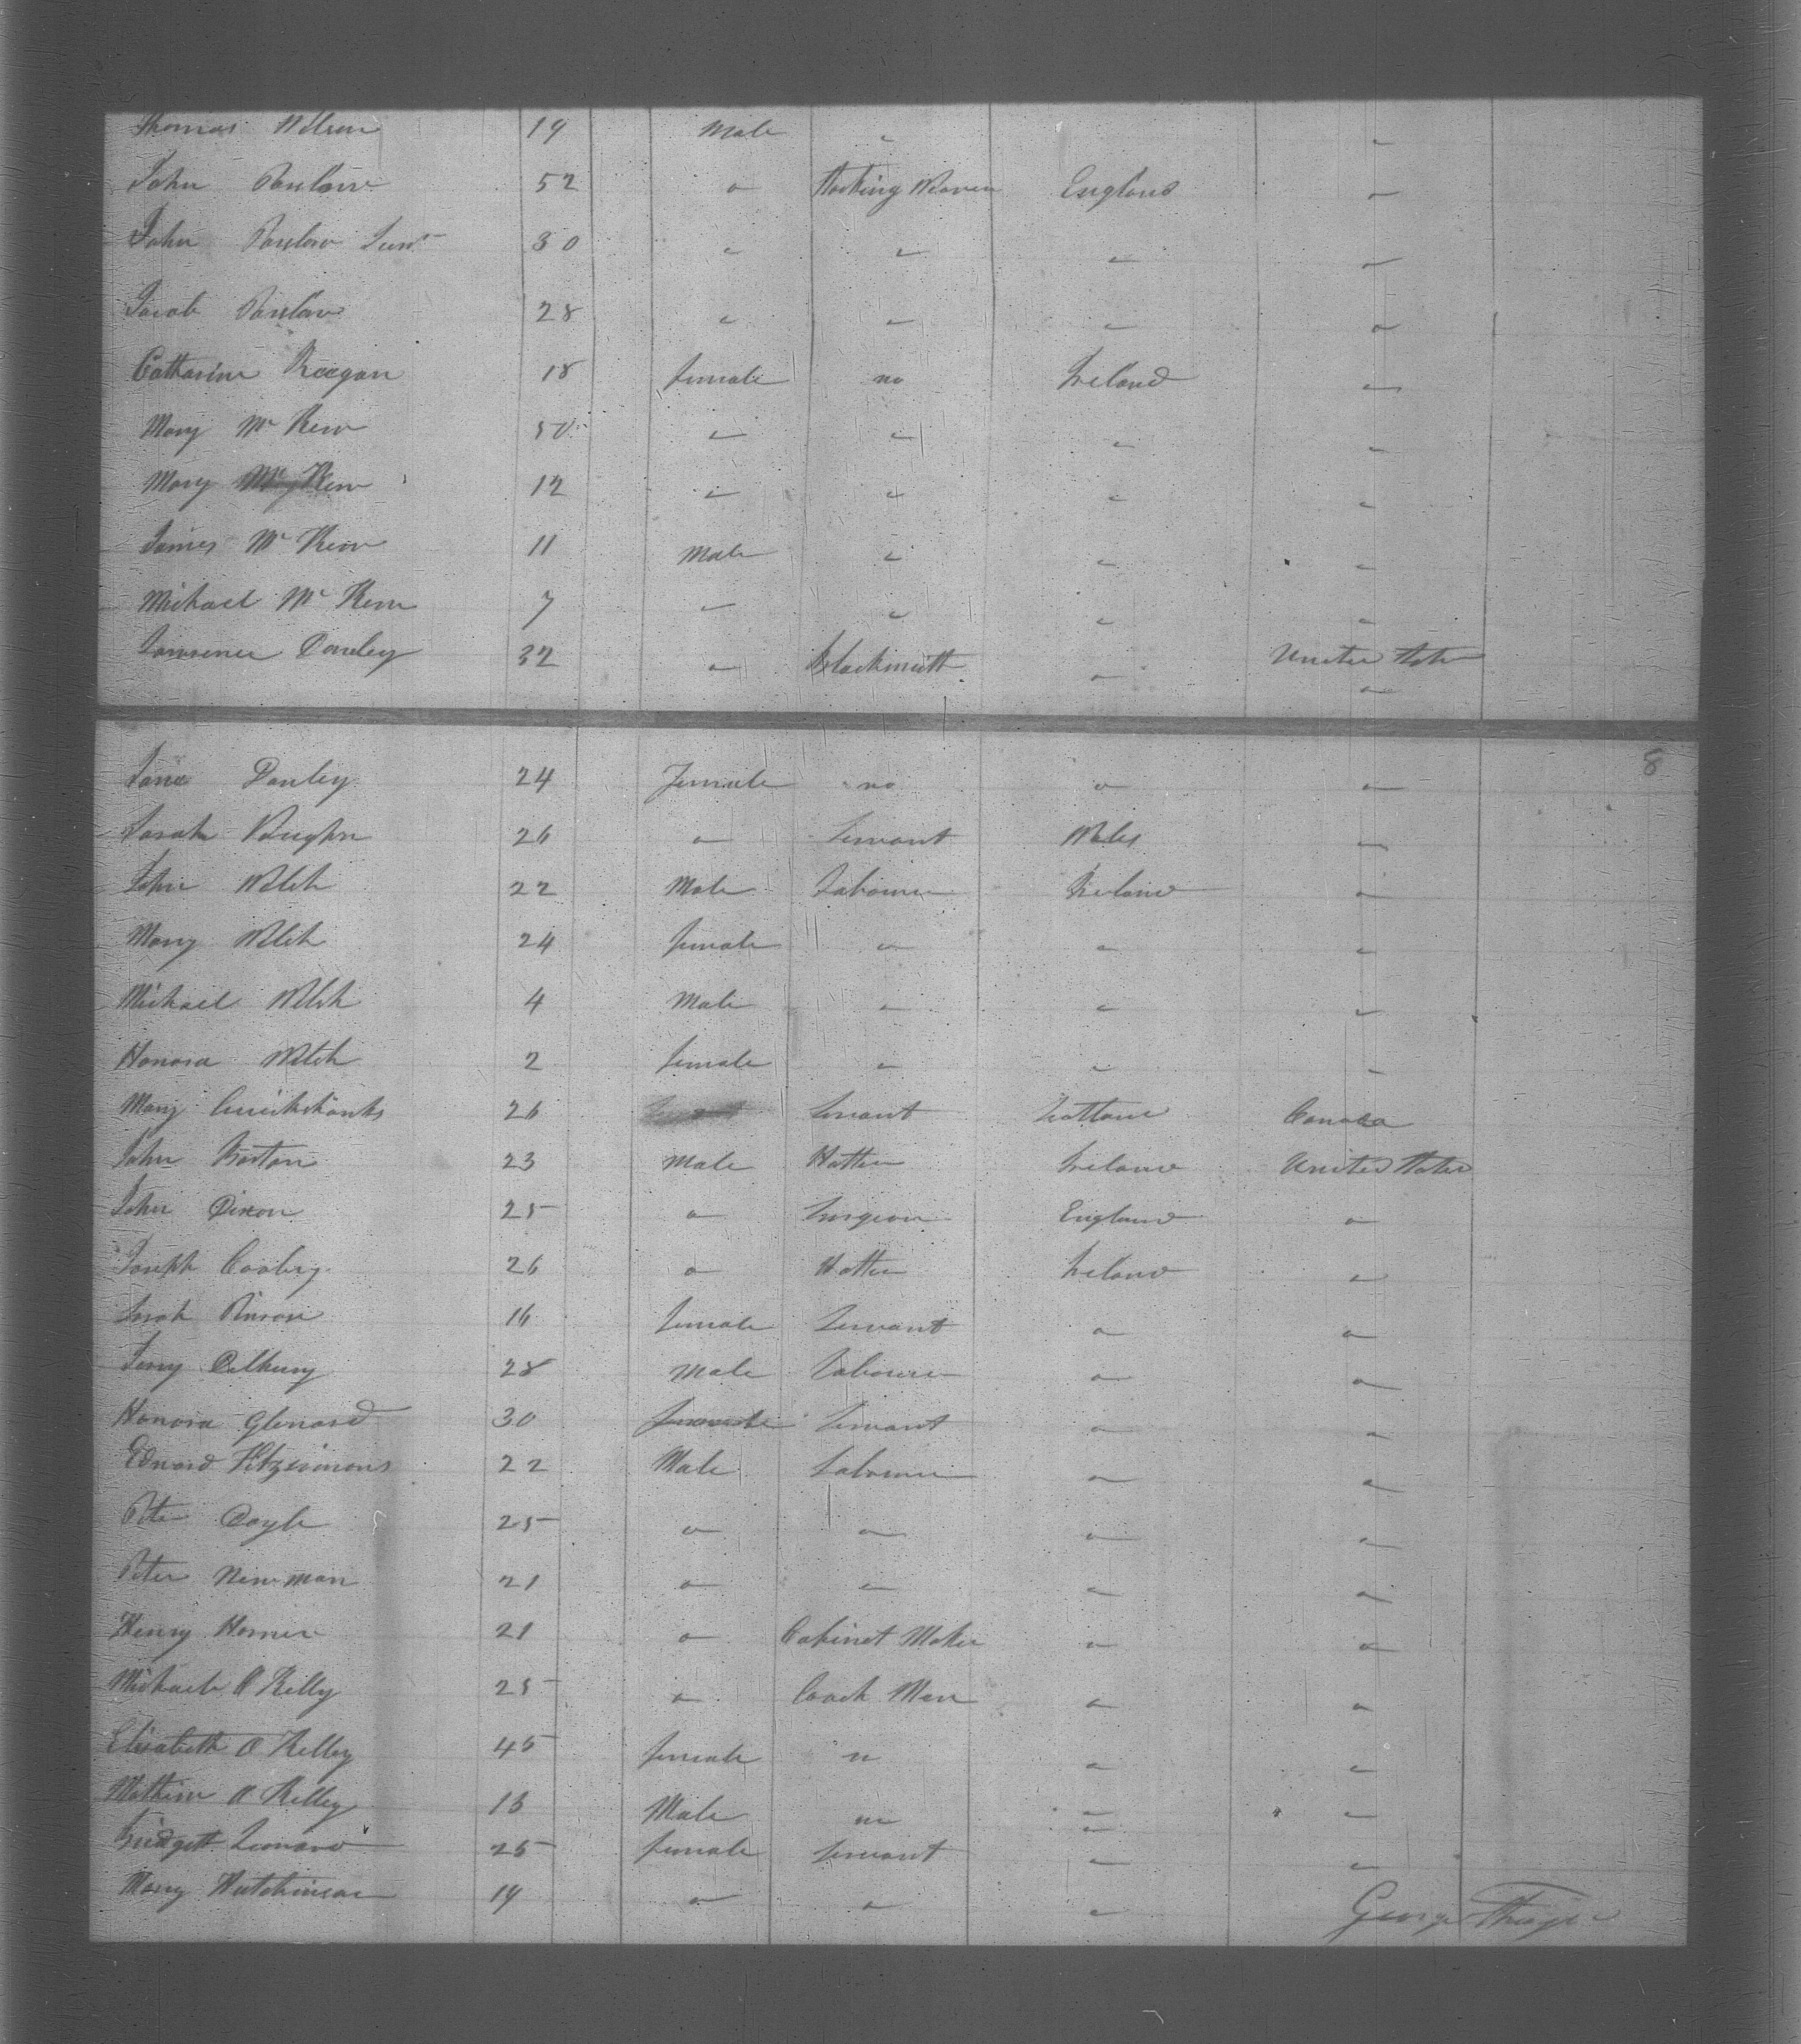 Thomas Wilson 19 Male " "
John Barlow 52 " Stocking Weaver England "
John Barlow Junr 30 " " " "
Jacob Barlow 28 " " " "
Catharine Reagan 18 female no Ireland "
Mary Mc Kew 50 " " " "
Mary Mc Kew 12 " " " "
James Mc Kew 11 Male " " "
Michael Mc Kew 7 " " " "
Lawrence Danley 32 " Blacksmith " United States
"
8
Jane Danley 24 Female no " "
Sarah Vaughn 26 " Servant Wales "
John Welch 22 Male Labourer Ireland "
Mary Welch 24 female " " "
Michael Welch 4 Male " " "
Honora Welch 2 female " " "
Mary Cruickshanks 26 Servant Scotland Canada
John Barton 23 Male Hatter Ireland United States
John Dixon 25 " Surgeon England "
Joseph Cooley 26 " Hatter Ireland "
Sarah 16 female Servant " "
28 Male Labourer " "
Honora Glenard 30 female Servant " "
Edward Fitzsimons 22 Male Labourer " "
Peter Doyle 25 " " " "
Peter Newman 21 " " " "
Henry Horner 21 " Cabinet Maker " "
Michael O Kelly 25 " Coach Man " "
Elisabeth O Kelly 45 female no " "
Mathew O Kelly 13 Male no " "
"
Bridgett Leonard 25 female Servant " "
Mary Hutchinson 19 " " "
George Thayer